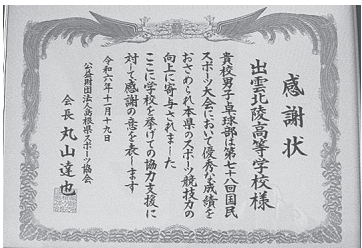 感謝状
出雲北陵高等学校様
貴校男子卓球部は第七十八回国民
スポーツ大会において優秀な成績を
おさめられ本県のスポーツ競技力の
向上に寄与されました
ここに学校を挙げての協力支援に
対して感謝の意を表します
令和六年十一月十九日
公益財団法人島根県スポーツ協会
会長 丸山達也